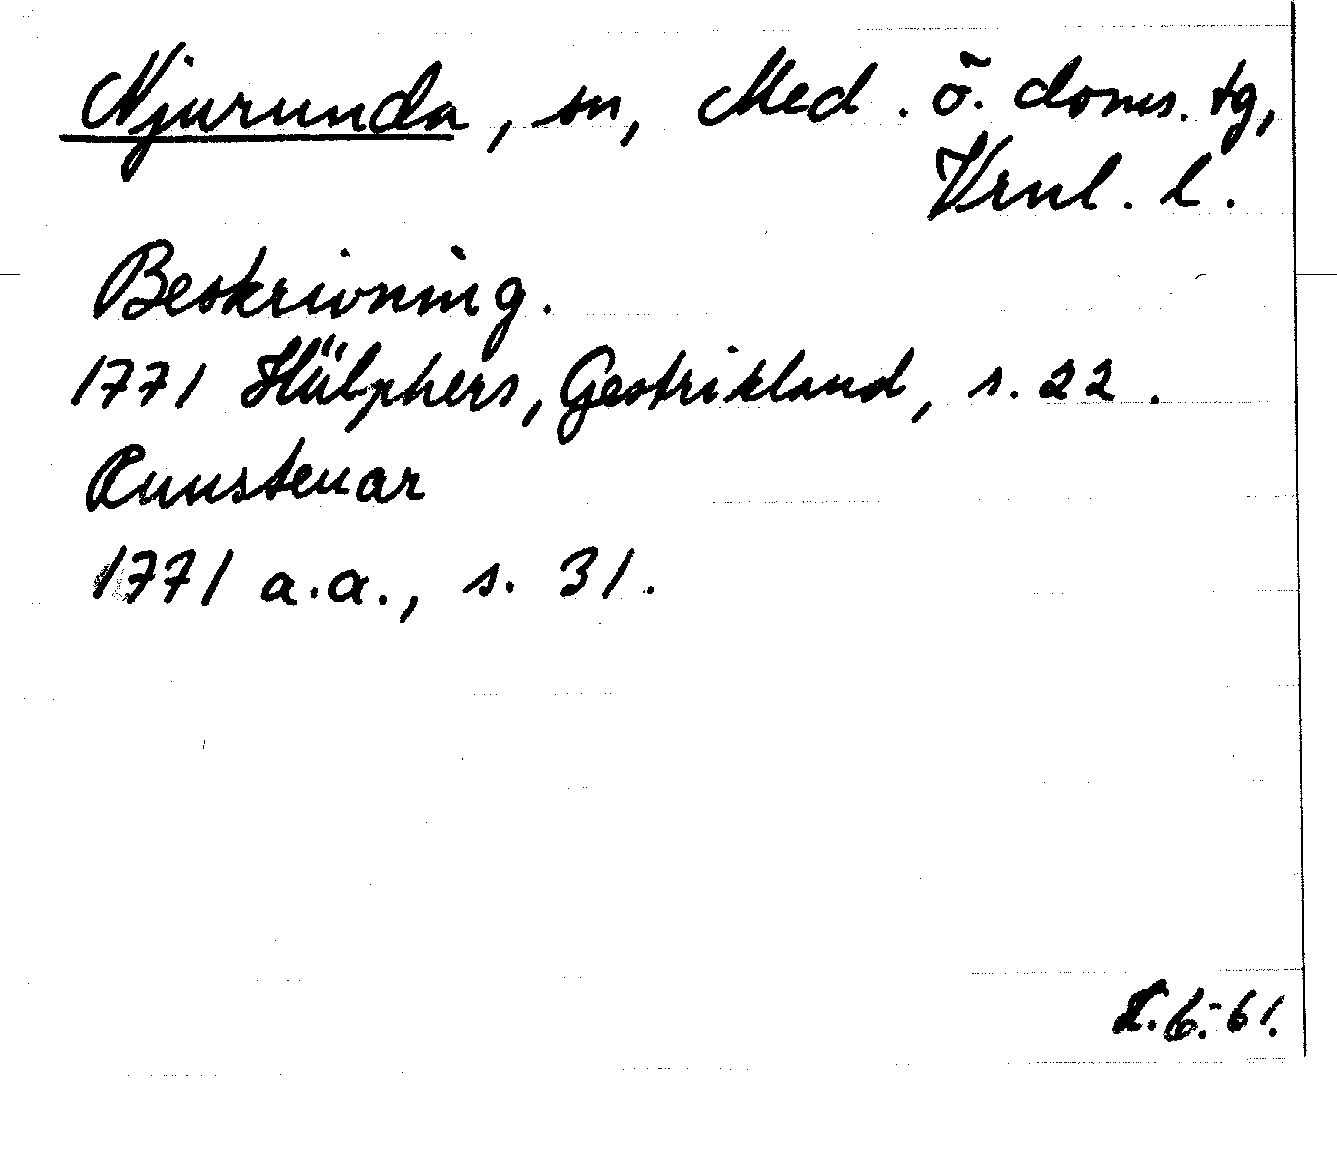 Njurunda, sn, Med. ö. doms. tg,
Vrnl. l.
Beskrivning.
1771 Hülphers, Gestrikland, s. 22.
Runstenar
1771 a.a., s. 31.
6.-61.